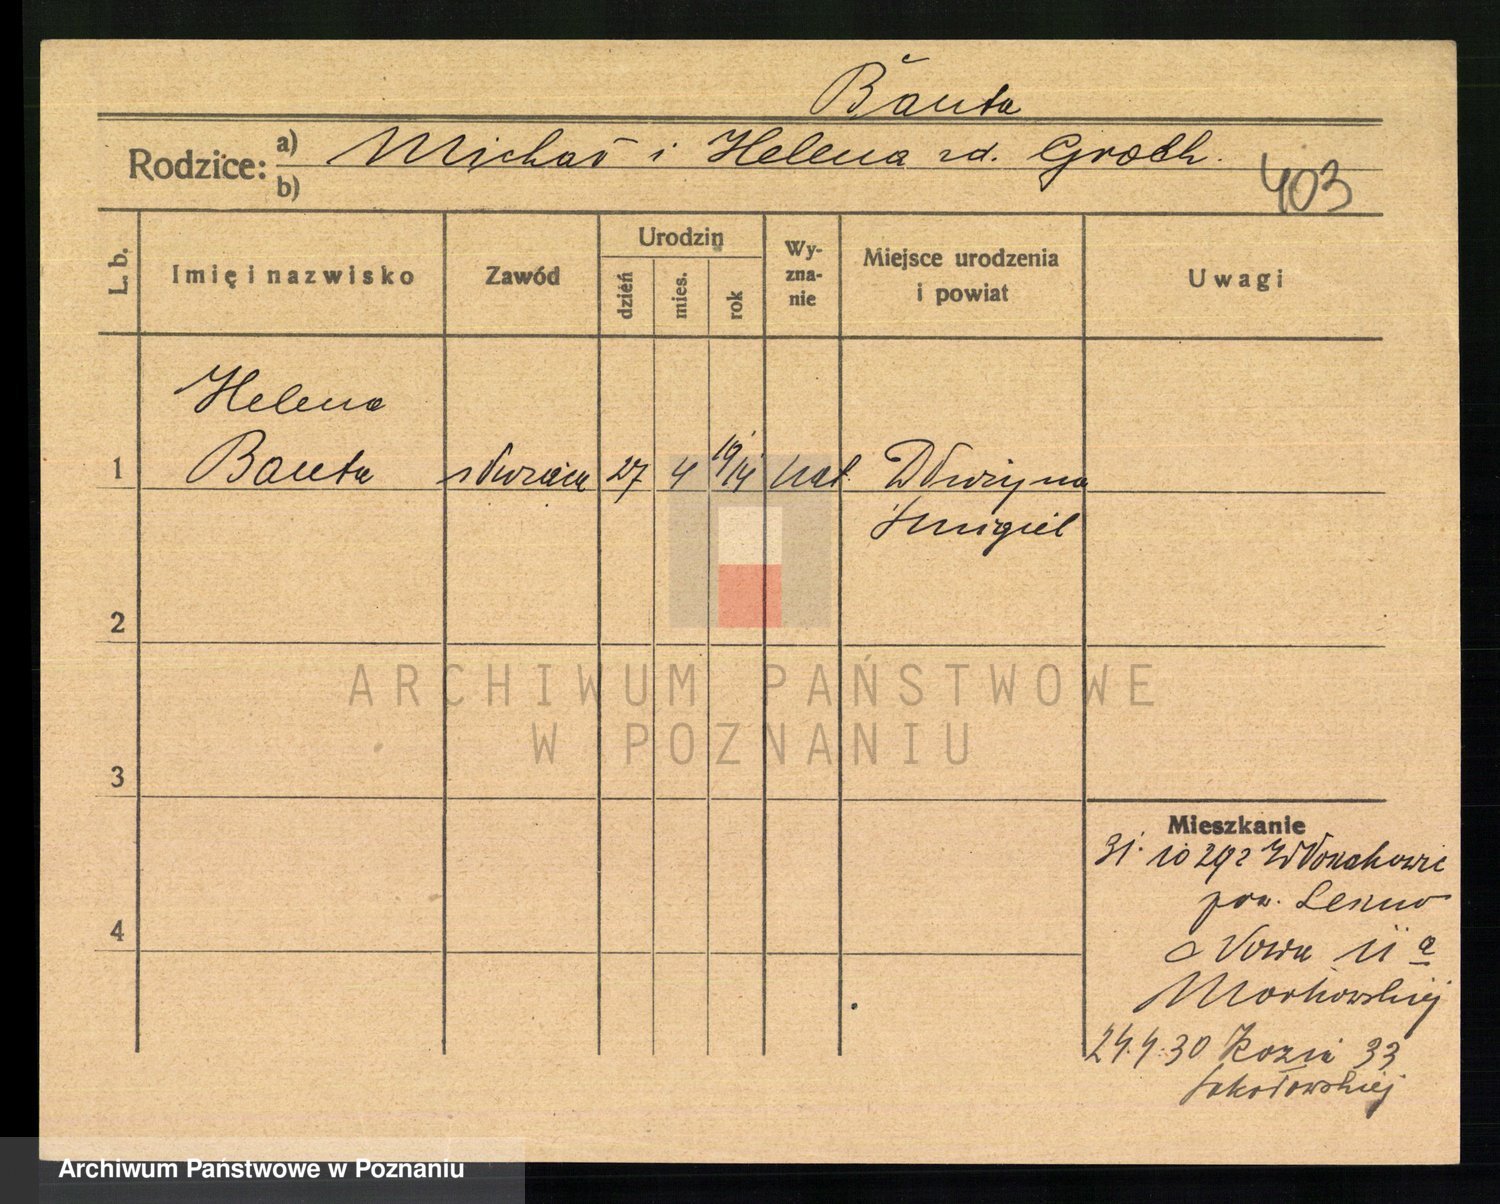 Bauta
Rodzice: a) Michał i Helena zd. Groch.
b)
403
L. b.
Imię i nazwisko
Zawód
Urodzin
dzień
mies.
rok
Wy-
zna-
nie
Miejsce urodzenia
i powiat
Uwagi
Helena
1 Bauta służąca 27 4 19/14 kat.
Śmigiel
2
ARCHIWUM PAŃSTWOWE
W POZNANIU
3
Mieszkanie
31. 10 29 z
pow. Leszno
4
Nowa 11 a
24.4.30 Kozia 33
Sokołowskiej
Archiwum Państwowe w Poznaniu